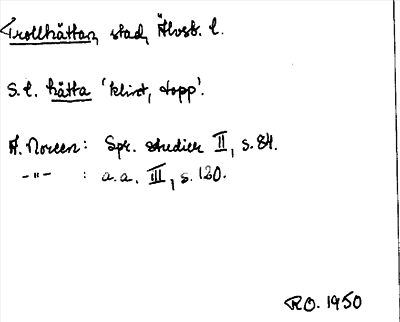 Trollhättan, stad, Älvsb. l.
S. l. hätta 'klint, topp'.
A. Noreen: Spr. studier II, s. 84.
-"- : a. a. III, s. 120.
R.O. 1950